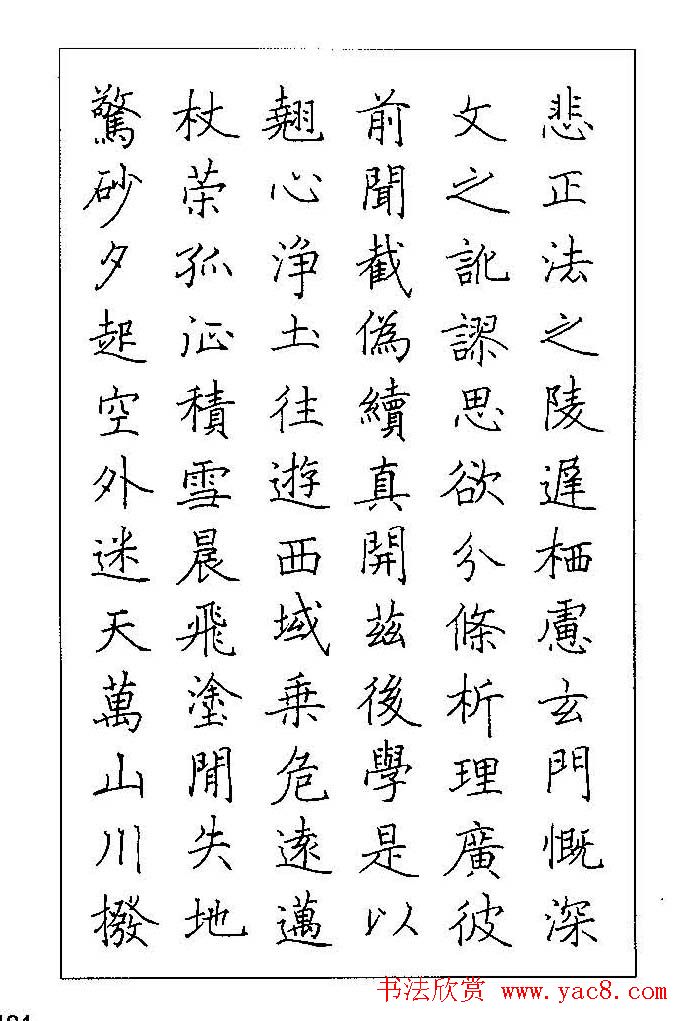 悲正法之陵遲栖慮玄門慨深
文之訛謬思欲分條析理廣彼
前聞截偽續真開茲後學是以
翹心淨土往遊西域乗危遠邁
杖荣孤征積雪晨飛塗閒失地
驚砂夕起空外迷天萬山川撥
书法欣赏 www.yac8.com